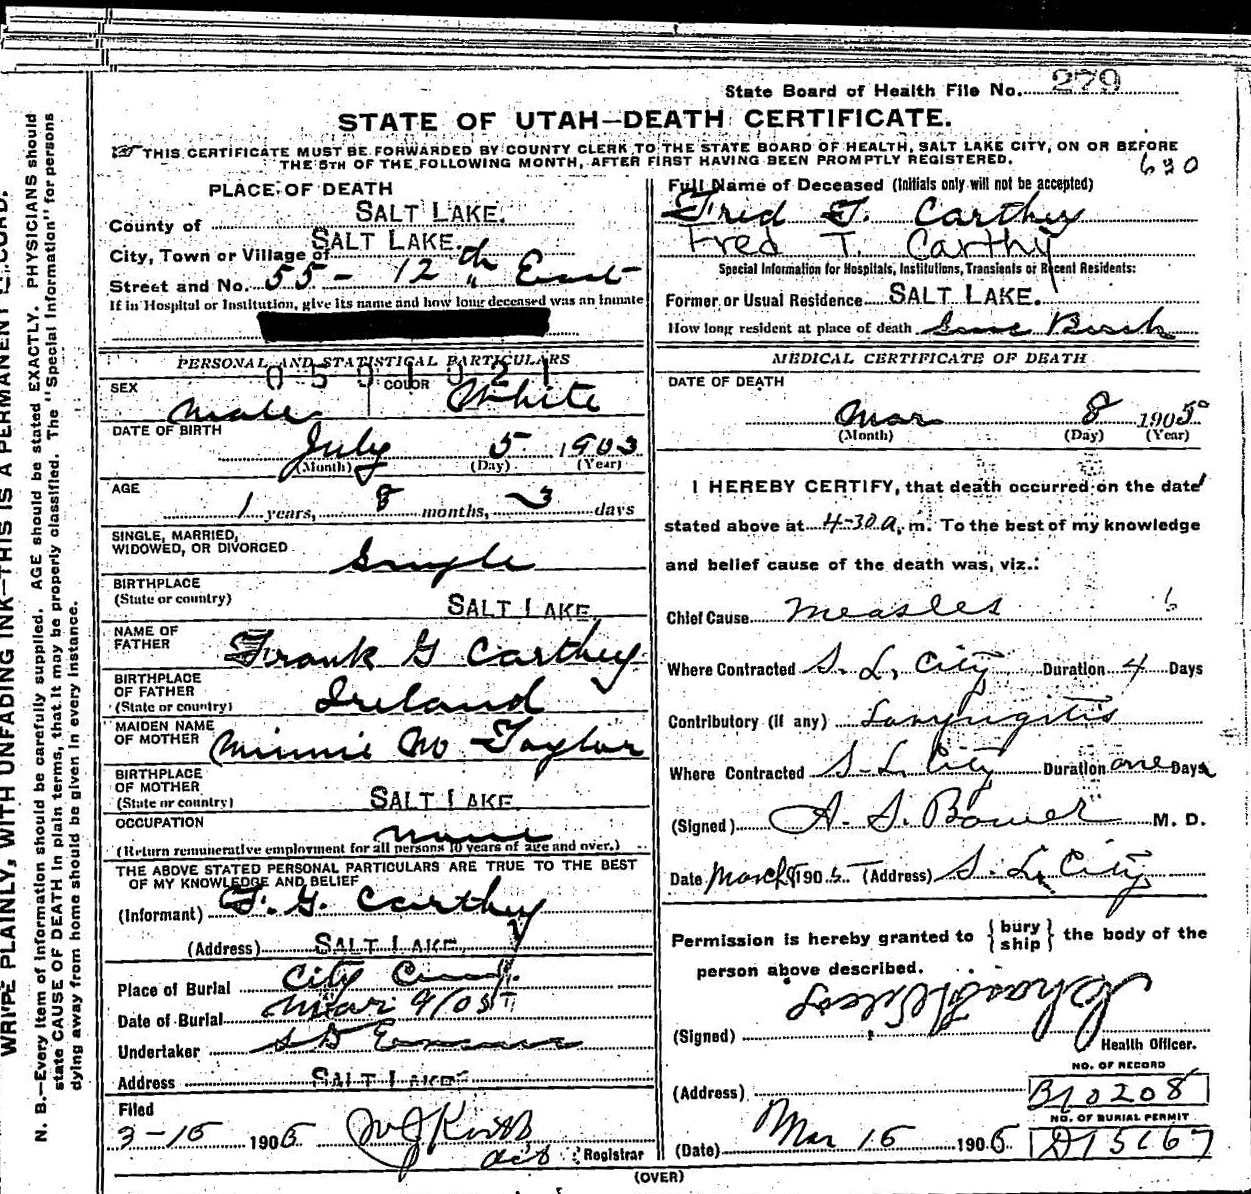 State Board of Health File No. 279
STATE OF UTAH—DEATH CERTIFICATE.
THIS CERTIFICATE MUST BE FORWARDED BY COUNTY CLERK TO THE STATE BOARD OF HEALTH, SALT LAKE CITY, ON OR BEFORE
THE 5TH OF THE FOLLOWING MONTH, AFTER FIRST HAVING BEEN PROMPTLY REGISTERED.
630
PLACE OF DEATH
County of SALT LAKE.
City, Town or Village of SALT LAKE.
Street and No. 55 - 12th East
If in Hospital or Institution, give its name and how long deceased was an inmate
PERSONAL AND STATISTICAL PARTICULARS
0501021
SEX Male COLOR White
DATE OF BIRTH July 5 1903
(Month) (Day) (Year)
AGE 1 years, 8 months, 3 days
SINGLE, MARRIED,
WIDOWED, OR DIVORCED Single
BIRTHPLACE
(State or country) SALT LAKE
NAME OF
FATHER Frank G Carthey
BIRTHPLACE
OF FATHER
(State or country) Ireland
MAIDEN NAME
OF MOTHER Minnie M Taylor
BIRTHPLACE
OF MOTHER
(State or country) SALT LAKE
OCCUPATION none
(Return remunerative employment for all persons 10 years of age and over.)
THE ABOVE STATED PERSONAL PARTICULARS ARE TRUE TO THE BEST
OF MY KNOWLEDGE AND BELIEF
(Informant) F. G. Carthey
(Address) SALT LAKE
Place of Burial City Cem
Date of Burial Mar 9/05
Undertaker S D Evans
Address SALT LAKE
Filed
3-15 1905
Registrar
(OVER)
Full Name of Deceased (Initials only will not be accepted)
Fred T. Carthey
Fred T. Carthy
Special Information for Hospitals, Institutions, Transients or Recent Residents:
Former or Usual Residence SALT LAKE.
How long resident at place of death Since Birth
MEDICAL CERTIFICATE OF DEATH
DATE OF DEATH
Mar 8 1905
(Month) (Day) (Year)
I HEREBY CERTIFY, that death occurred on the date
stated above at 4-30 a. m. To the best of my knowledge
and belief cause of the death was, viz.:
Chief Cause Measles 6
Where Contracted S. L. City Duration 4 Days
Contributory (if any) Laryngitis
Where Contracted S. L. City Duration one Days
(Signed) A. S. Bower M. D.
Date March 8 1905 (Address) S. L. City
Permission is hereby granted to { bury ship } the body of the
person above described.
(Signed)
Health Officer.
NO. OF RECORD
(Address) B10208
NO. OF BURIAL PERMIT
(Date) Mar 15 1905 D15167
WRITE PLAINLY, WITH UNFADING INK—THIS IS A PERMANENT RECORD.
N. B.—Every item of information should be carefully supplied. AGE should be stated EXACTLY. PHYSICIANS should
state CAUSE OF DEATH in plain terms, that it may be properly classified. The "Special Information" for persons
dying away from home should be given in every instance.